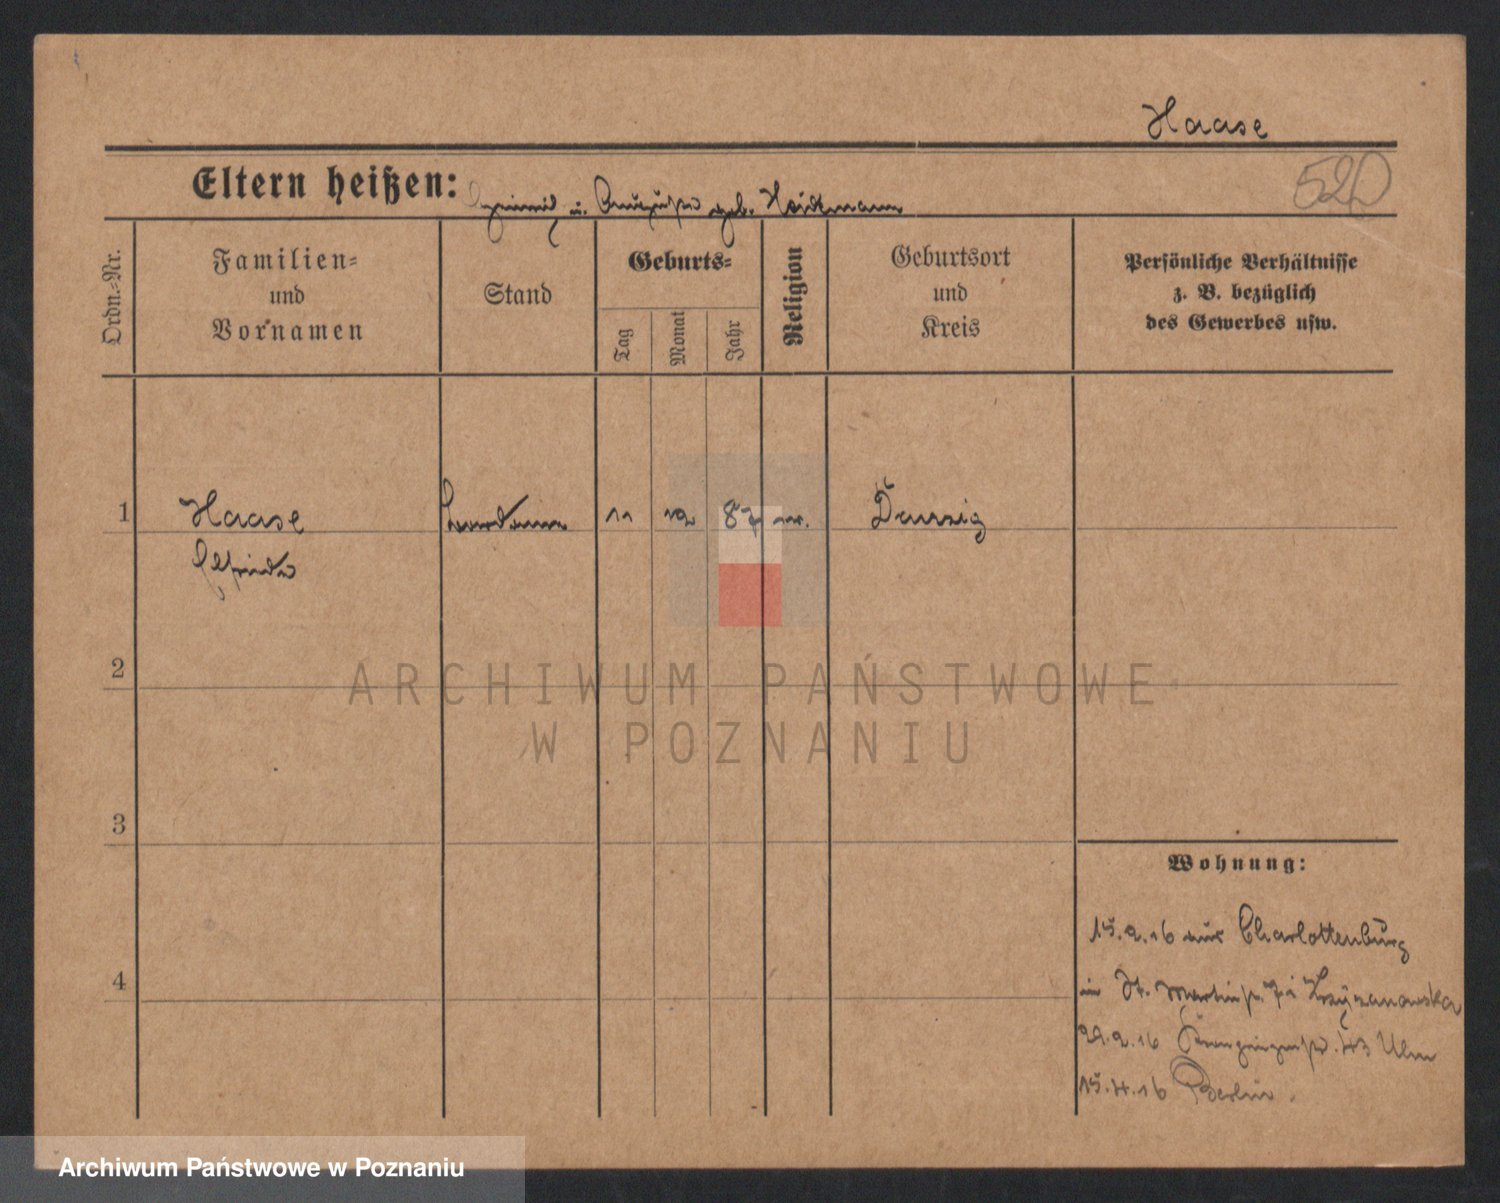 Haase
520
Eltern heißen: u. Auguste geb. Heidtmann
Ordn.-Nr.
Familien-
und
Vornamen
Stand
Geburts-
Tag
Monat
Jahr
Religion
Geburtsort
und
Kreis
Persönliche Verhältnisse
z. B. bezüglich
des Gewerbes usw.
1 Haase 11 12 87 ev. Danzig
Elfriede
2
ARCHIWUM PAŃSTWOWE
W POZNANIU
3
Wohnung:
15.2.16 aus Charlottenburg
4
in St. Martinstr. Krzyzanowska
22.2.16 Ulm
15.4.16 Berlin.
Archiwum Państwowe w Poznaniu